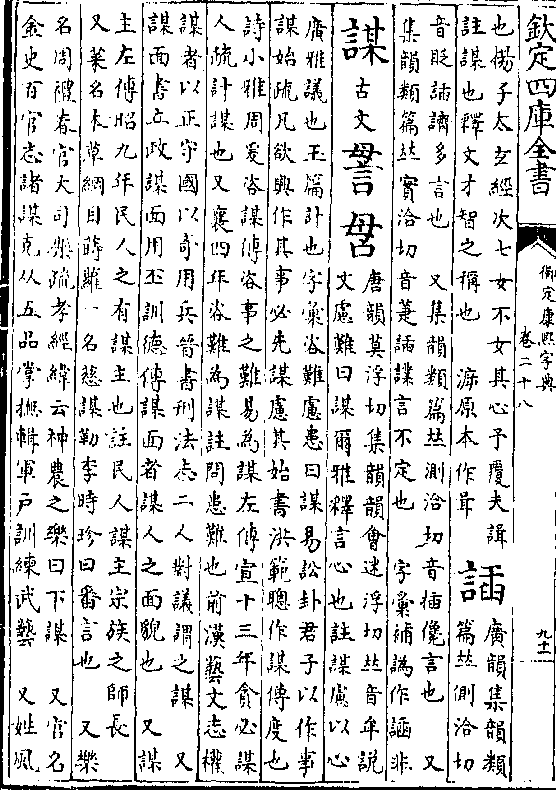 欽定四庫全書
御定康熙字典
卷二十八
九十一
也揚子太玄經次七女不女其心予覆夫諝
註謀也釋文才智之稱也 原本作
廣韻集韻類
篇𠀤側洽切
音眨 多言也 又集韻類篇𠀤測洽切音插儳言也 又
集韻類篇𠀤實洽切音萐 諜言不定也 字彙補譌作 非
謀 古文
唐韻莫浮切集韻韻會迷浮切𠀤音牟說
文慮難曰謀爾雅釋言心也註謀慮以心
廣雅議也玉篇計也字彙咨難慮患曰謀易訟卦君子以作事
謀始疏凡欲興作其事必先謀慮其始書洪範聰作謀傳度也
詩小雅周爰咨謀傳咨事之難易為謀左傳宣十三年貪必謀
人疏計謀也又襄四年咨難為謀註問患難也前漢藝文志權
謀者以正守國以奇用兵晉書刑法志二人對議謂之謀 又
謀面書立政謀面用丕訓德傳謀面者謀人之面貌也 又謀
主左傳昭九年民人之有謀主也註民人謀主宗族之師長
又菜名本草綱目蒔蘿一名慈謀勒李時珍曰番言也 又樂
名周禮春官大司樂疏孝經緯云神農之樂曰下謀 又官名
金史百官志諸謀克从五品掌撫輯軍戶訓練武藝 又姓風